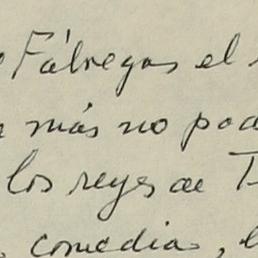 Fábregas el
más no pod
los reyes de T
comedia,